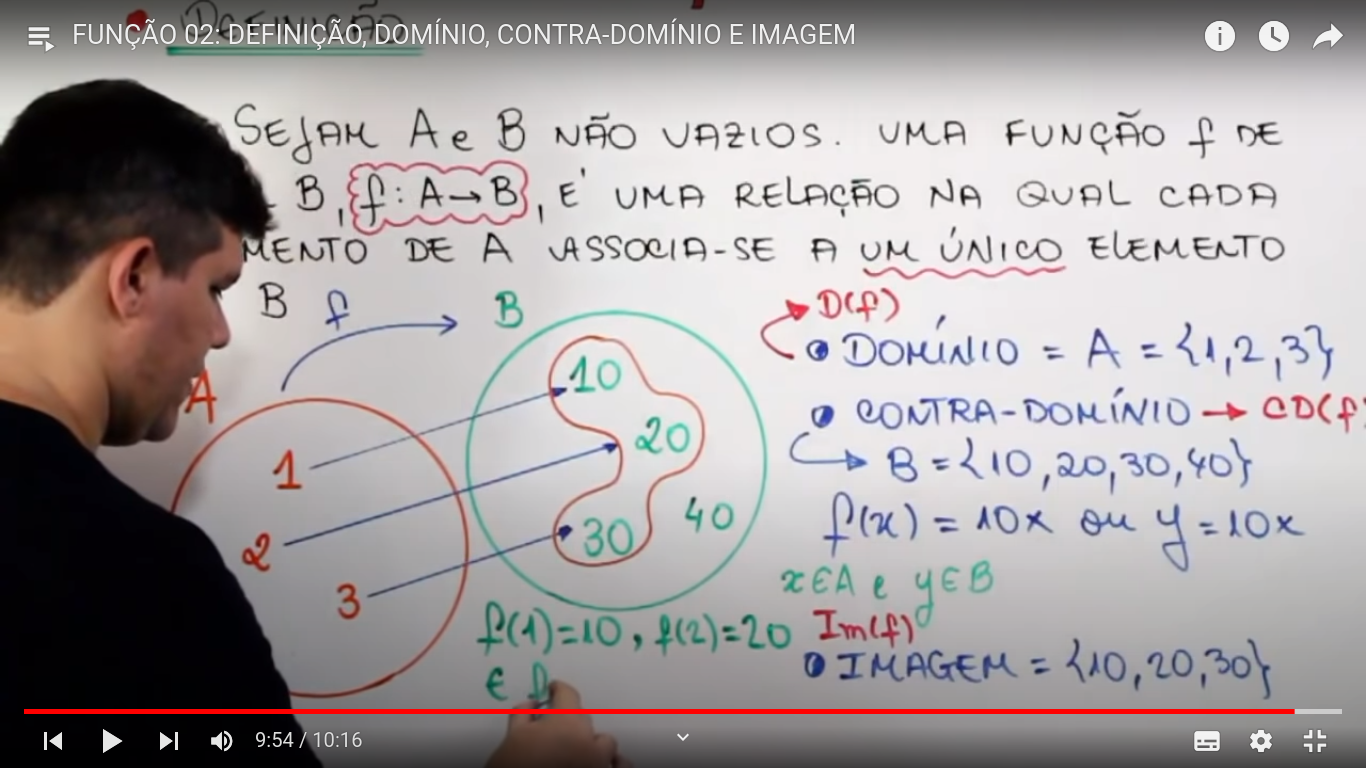 DEFINIÇÃO
FUNÇÃO 02: DEFINIÇÃO, DOMÍNIO, CONTRA-DOMÍNIO E IMAGEM
SEJAM A e B NÃO VAZIOS. UMA FUNÇÃO f DE
B, f: A→B, E' UMA RELAÇÃO NA QUAL CADA
MENTO DE A ASSOCIA-SE A UM ÚNICO ELEMENTO
B
f
A
B
1
2
3
10
20
30
40
D(f)
DOMÍNIO = A = {1,2,3}
CONTRA-DOMÍNIO → CD(f)
B = {10,20,30,40}
f(x) = 10x ou y = 10x
x∈A e y∈B
f(1)=10, f(2)=20
e
Im(f)
IMAGEM = {10,20,30}
9:54 / 10:16